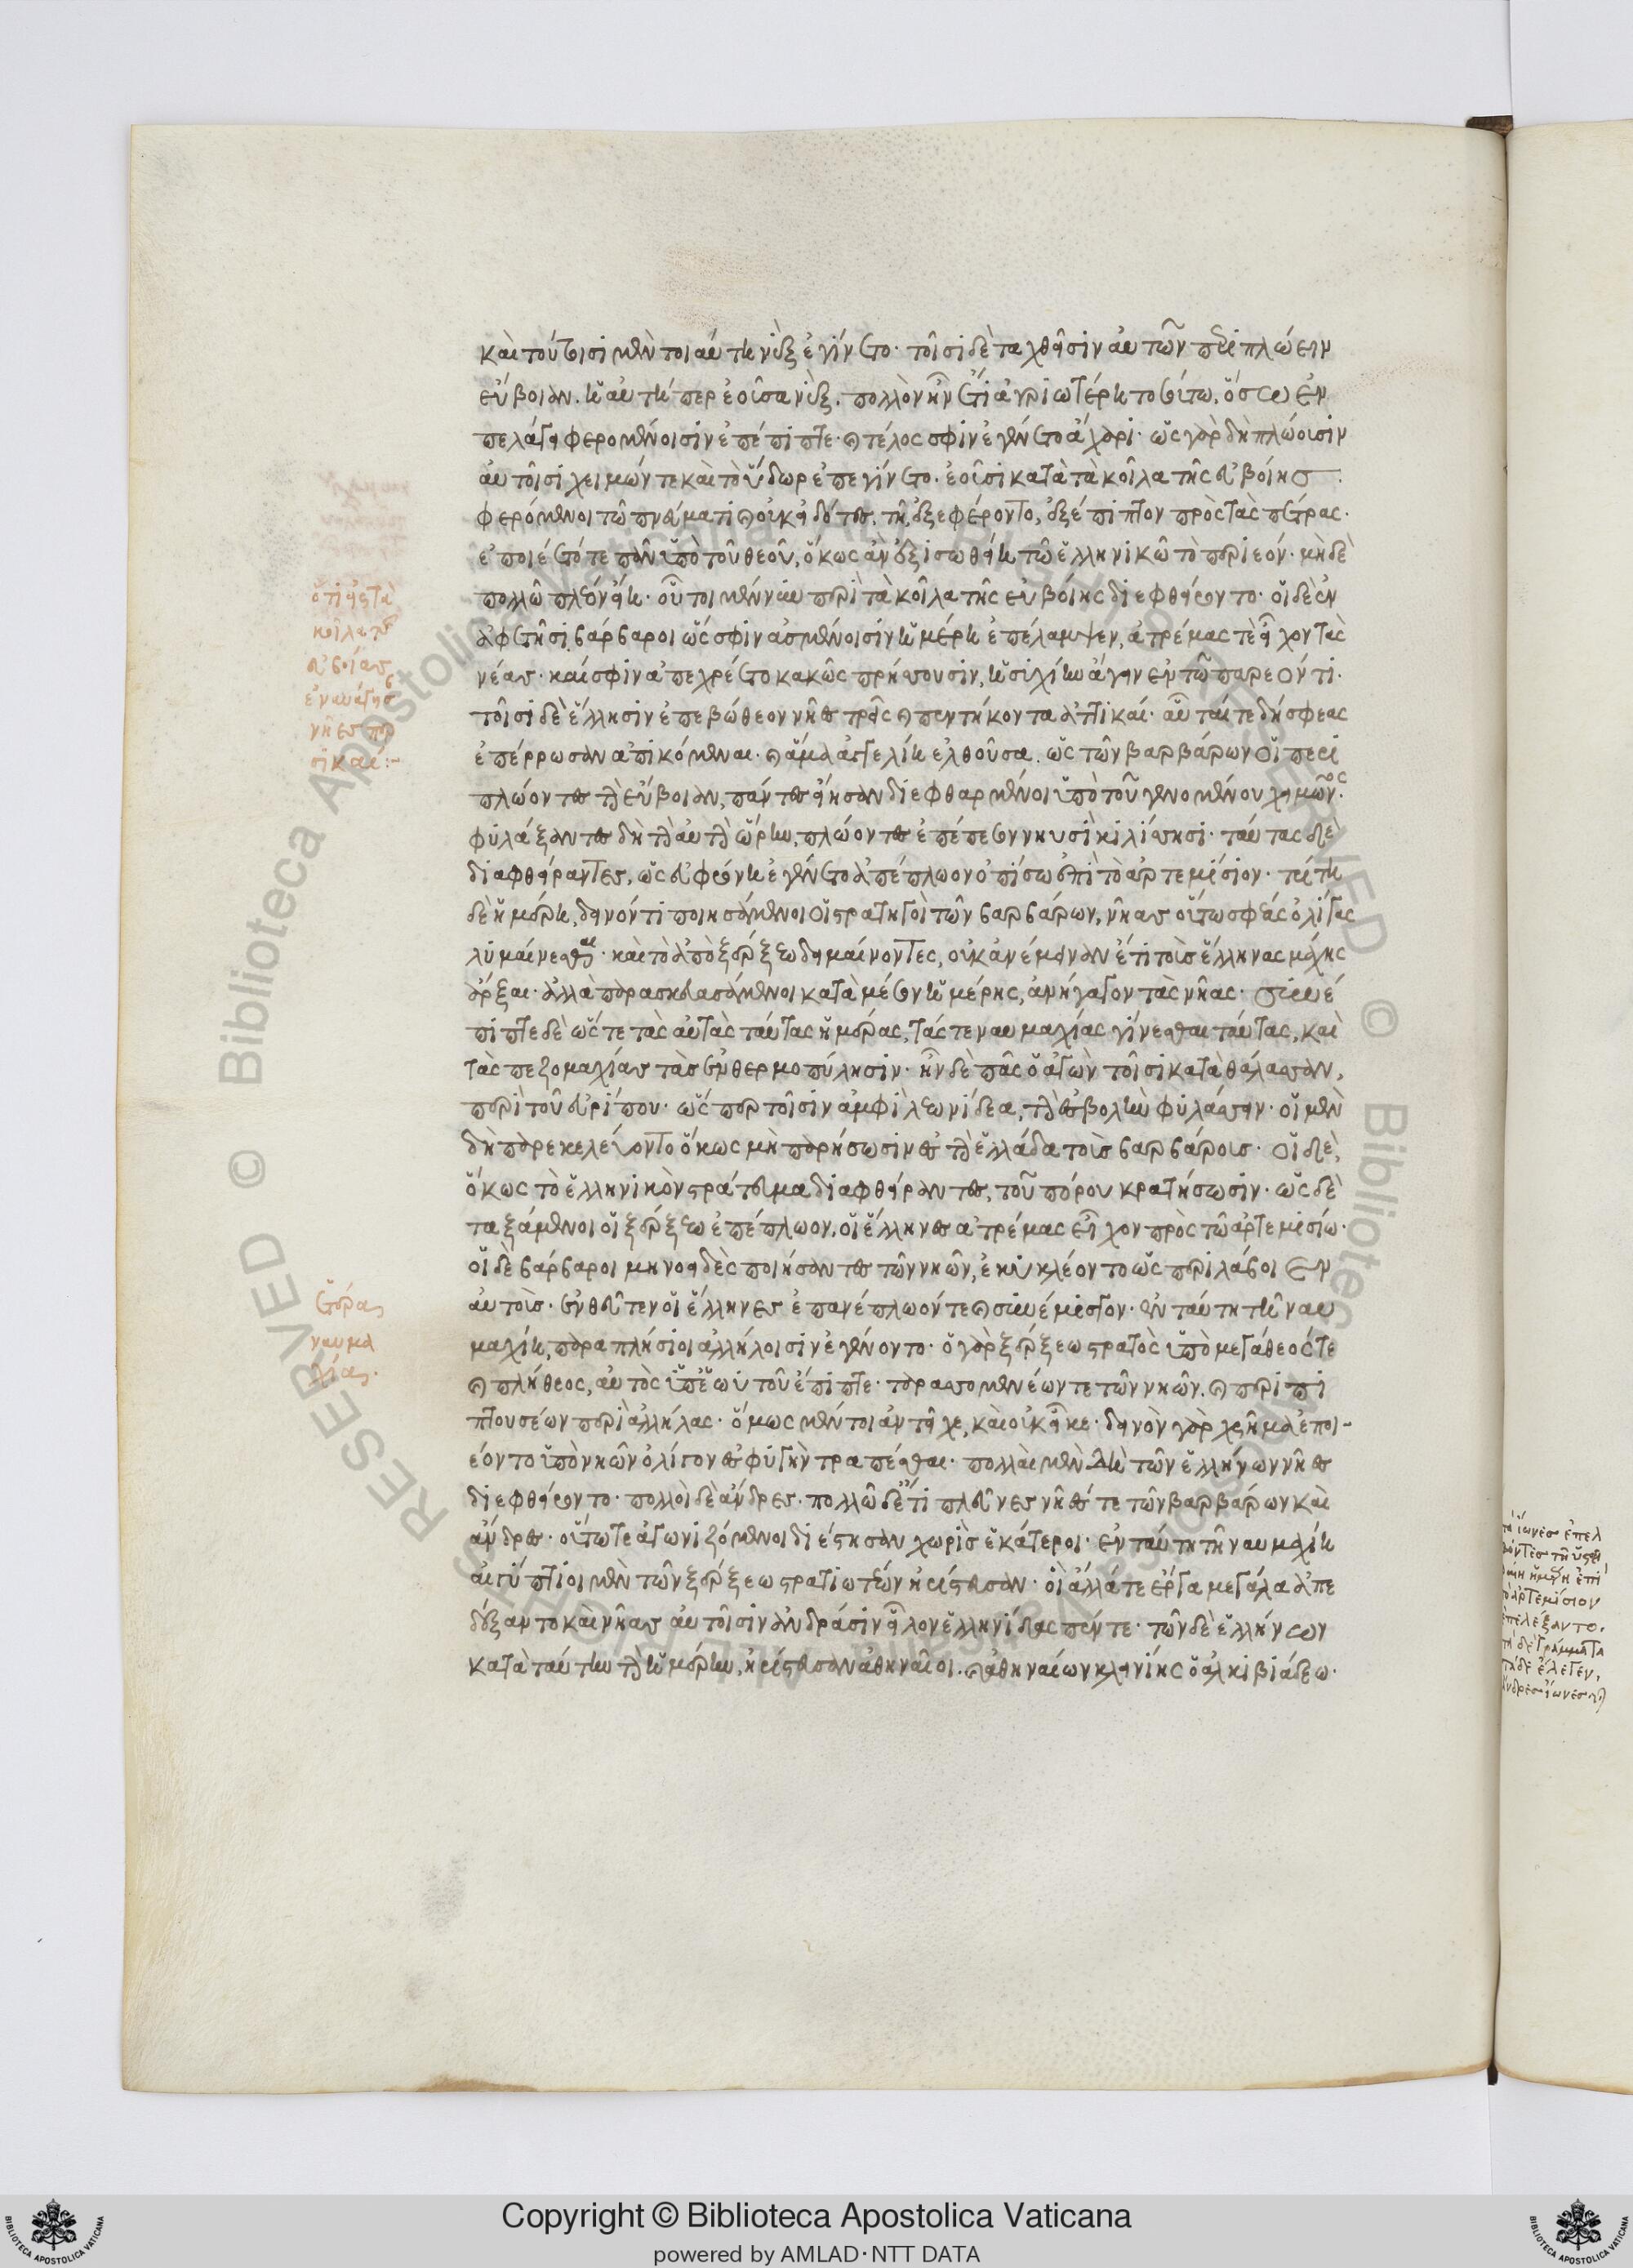 καὶ τούτοισι μὲν τοιαύτη νὺξ ἐγίνετο· τοῖσι δὲ ταχθεῖσιν αὐτῶν περιπλώειν
εὔβοιαν. ἡ αὐτή περ ἐοῦσα νὺξ, πολλὸν ἦν ἔτι ἀγριωτέρη τοσούτω, ὅσω ἐν
πελάγει φερομένοισιν ἐπέπιπτε· καὶ τέλος σφιν ἐγένετο ἄχαρι· ὡς γὰρ δὴ πλώουσιν
αὐτοῖσι χειμών τε καὶ τὸ ὕδωρ ἐπεγίνετο. ἐοῦσι κατὰ τὰ κοῖλα τῆς εὐβοίης
φερόμενοι τῶ πνεύματι καὶ οὐκ εἰδότες, τῆ ἐξεφέροντο, ἐξέπιπτον πρὸς τὰς πέτρας.
ἐποιέετό τε πᾶν ὑπὸ τοῦ θεοῦ, ὅκως ἂν ἐξισωθείη τῶ ἑλληνικῶ τὸ περιεόν· μὴ δὲ
πολλῶ πλέον εἴη. οὗτοι μέν νυν περὶ τὰ κοῖλα τῆς εὐβοίης διεφθείροντο· οἱ δὲ ἐν
ἀφετῆσι βάρβαροι ὥς σφιν ἀσμένοισιν ἡμέρη ἐπέλαμψεν, ἀτρέμας τὲ εἶχον τὰς
νέας· καί σφιν ἀπεχρέετο κακῶς πρήσσουσιν, ἡσυχίην ἄγειν ἐν τῶ παρεόντι.
τοῖσι δὲ ἕλλησιν ἐπεβώθεον νῆες τρεῖς καὶ πεντήκοντα ἀττικαί. αὗταί τε δή σφεας
ἐπέρρωσαν ἀπικόμεναι· καὶ ἅμα ἀγγελίη ἐλθοῦσα. ὡς τῶν βαρβάρων οἱ περι
πλώοντες τὴν εὔβοιαν, πάντες εἴησαν διεφθαρμένοι ὑπὸ τοῦ γενομένου χειμῶνος.
φυλάξαντες δὴ τὴν αὐτὴν ὥρην, πλώοντες ἐπέπεσον νηυσὶ κιλίσσησι· ταύτας δὲ
διαφθείραντες, ὡς εὐφρόνη ἐγένετο ἀπέπλωον ὀπίσω ἐπὶ τὸ ἀρτεμίσιον. τρίτη
δὲ ἡμέρη, δεινόν τι ποιησάμενοι οἱ στρατηγοὶ τῶν βαρβάρων, νῆας οὕτω σφέας ὀλίγας
λυμαίνεσθαι. καὶ τὸ ἀπὸ ξέρξεω δειμαίνοντες, οὐκ ἀνέμειναν ἔτι τοὺς ἕλληνας μάχης
ἄρξαι. ἀλλὰ παρασκευασάμενοι κατὰ μέσον ἡμέρης, ἀνήγαγον τὰς νῆας. συνέ
πιπτε δὲ ὥστε τὰς αὐτὰς ταύτας ἡμέρας, τάς τε ναυμαχίας γίνεσθαι ταύτας, καὶ
τὰς πεζομαχίας τὰς ἐν θερμοπύλησιν. ἦν δὲ πᾶς ὁ ἀγὼν τοῖσι κατὰ θάλασσαν,
περὶ τοῦ εὐρίπου. ὥσπερ τοῖσιν ἀμφὶ λεωνίδεα, τὴν ἐσβολὴν φυλάσσειν. οἱ μὲν
δὴ παρεκελεύοντο ὅκως μὴ παρήσωσιν ἐς τὴν ἑλλάδα τοὺς βαρβάρους. οἱ δὲ,
ὅκως τὸ ἑλληνικὸν στράτευμα διαφθείραντες, τοῦ πόρου κρατήσωσιν. ὡς δὲ
ταξάμενοι οἱ ξέρξεω ἐπέπλωον, οἱ ἕλληνες ἀτρέμας εἶχον πρὸς τῶ ἀρτεμισίω.
οἱ δὲ βάρβαροι μηνοειδὲς ποιήσαντες τῶν νηῶν, ἐκυκλέοντο ὡς περιλάβοιεν
αὐτούς. ἐνθεῦτεν οἱ ἕλληνες ἐπανέπλωόν τε καὶ συνέμισγον. ἐν ταύτη τῆ ναυ
μαχίη, παραπλήσιοι ἀλλήλοισιν ἐγένοντο. ὁ γὰρ ξέρξεω στρατὸς ὑπὸ μεγάθεός τε
καὶ πλήθεος, αὐτὸς ὑπ' ἑωυτοῦ ἔπιπτε. ταρασσομενέων τε τῶν νηῶν. καὶ περιπι
πτουσέων περὶ ἀλλήλας. ὅμως μέντοι ἀντεῖχε, καὶ οὐκ εἶκε. δεινὸν γὰρ χρῆμα ἐποι-
εόντο ὑπὸ νηῶν ὀλίγον ἐς φυγὴν τραπέσθαι. πολλαὶ μὲν δὴ τῶν ἑλλήνων νῆες
διεφθείροντο. πολλοὶ δὲ ἄνδρες. πολλῶ δ' ἔτι πλεῦνες νῆές τε τῶν βαρβάρων καὶ
ἄνδρες. οὕτω τε ἀγωνιζόμενοι διέστησαν χωρὶς ἑκάτεροι. ἐν ταύτη τῆ ναυμαχίη
αἰγύπτιοι μὲν τῶν ξέρξεω στρατιωτέων ἠρίστευσαν. οἳ ἄλλα τε ἔργα μεγάλα ἀπε
δέξαντο καὶ νῆας αὐτοῖσιν ἀνδράσιν εἷλον ἑλληνίδας πέντε. τῶν δὲ ἑλλήνων
κατὰ ταύτην τὴν ἡμέρην, ἠρίστευσαν ἀθηναῖοι. καὶ ἀθηναίων κλεινίης ὁ ἀλκιβιάδεω.
ὅτι εἰς τὰ
κοῖλα τῆς
εὐβοίας
ἐναυάγησαν
νῆες περ
σικαί:-
ἑτέρας
ναυμα
χίας.
ἴωνες ἐπελ
θόντες τῆ ὑστε
ἡμέρη ἐπὶ
ἀρτεμίσιον
ἐπελέξαντο.
τὰ δὲ γράμματα
τάδε ἔλεγεν,
ἄνδρες ἴωνες
© Biblioteca Apostolica Vaticana
RESERVED
Copyright © Biblioteca Apostolica Vaticana
powered by AMLAD·NTT DATA
BIBLIOTECA APOSTOLICA VATICANA
BIBLIOTECA APOSTOLICA VATICANA